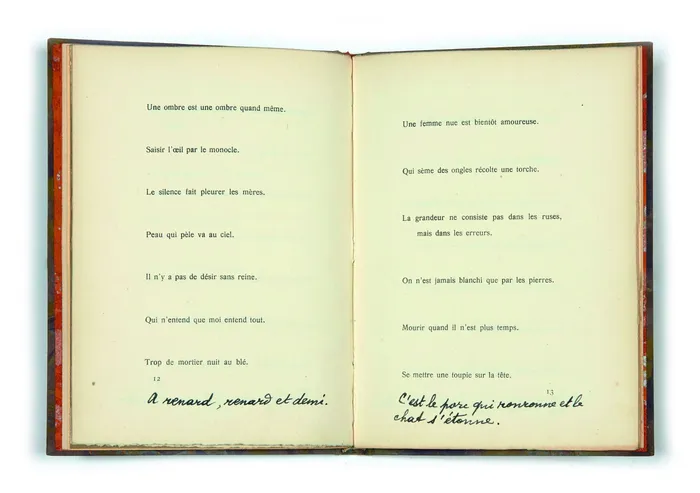 Une ombre est une ombre quand même.
Saisir l'œil par le monocle.
Le silence fait pleurer les mères.
Peau qui pèle va au ciel.
Il n'y a pas de désir sans reine.
Qui n'entend que moi entend tout.
Trop de mortier nuit au blé.
12
A renard, renard et demi.
Une femme nue est bientôt amoureuse.
Qui sème des ongles récolte une torche.
La grandeur ne consiste pas dans les ruses,
mais dans les erreurs.
On n'est jamais blanchi que par les pierres.
Mourir quand il n'est plus temps.
Se mettre une toupie sur la tête.
13
C'est le porc qui ronronne et le
chat s'étonne.